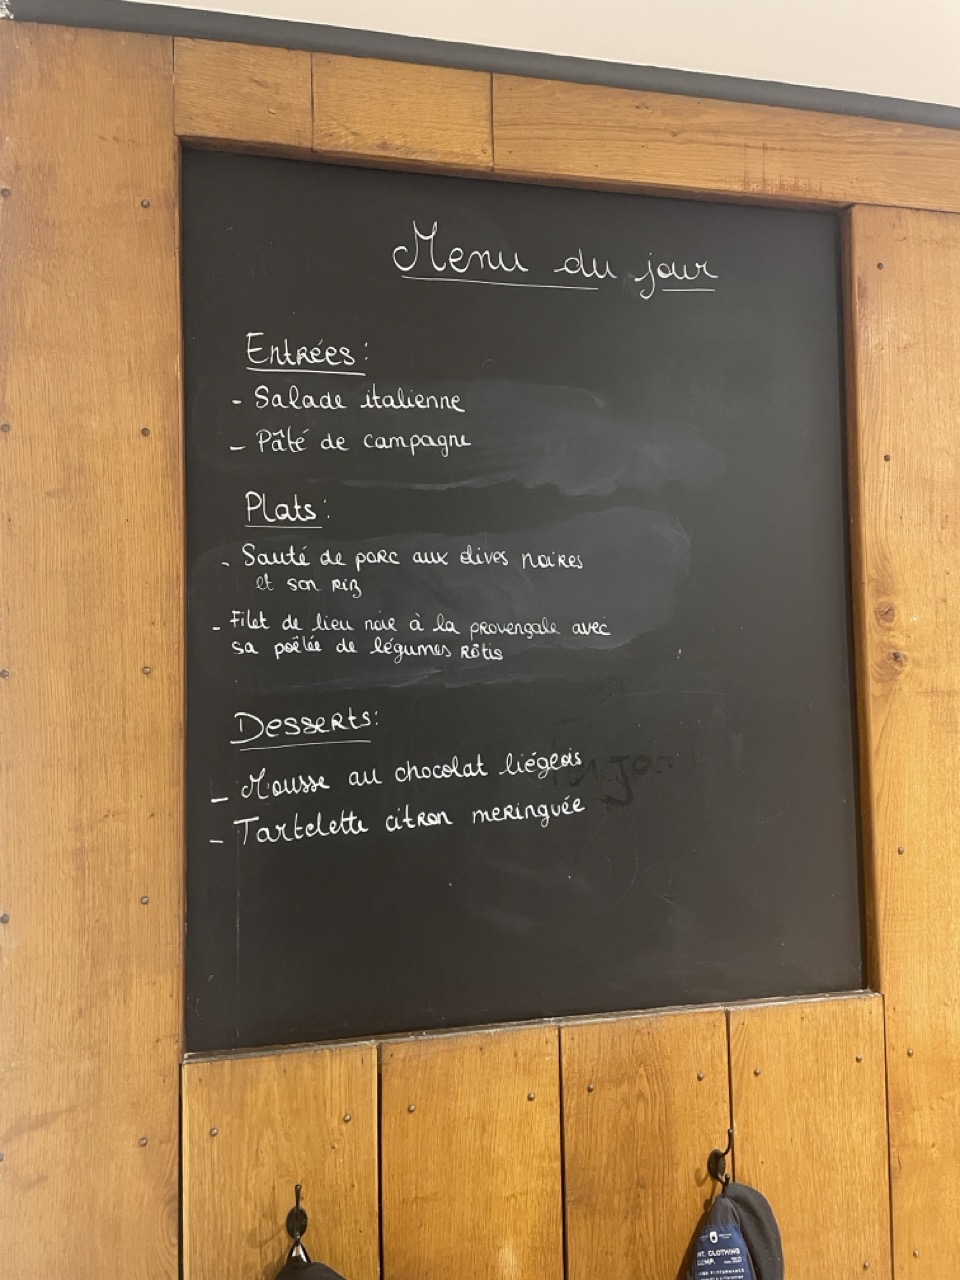 Menu du jour
Entrées :
- Salade italienne
- Pâté de campagne
Plats :
- Sauté de porc aux olives noires
et son riz
- Filet de lieu noir à la provençale avec
sa poêlée de légumes rôtis
Desserts :
- Mousse au chocolat liégeois
- Tartelette citron meringuée
NT. CLOTHING
COMP.